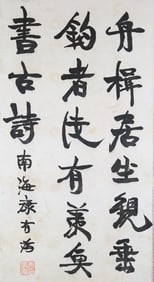 舟楫居坐觀垂
鈎者徒有羨魚
書古詩
南海康有為